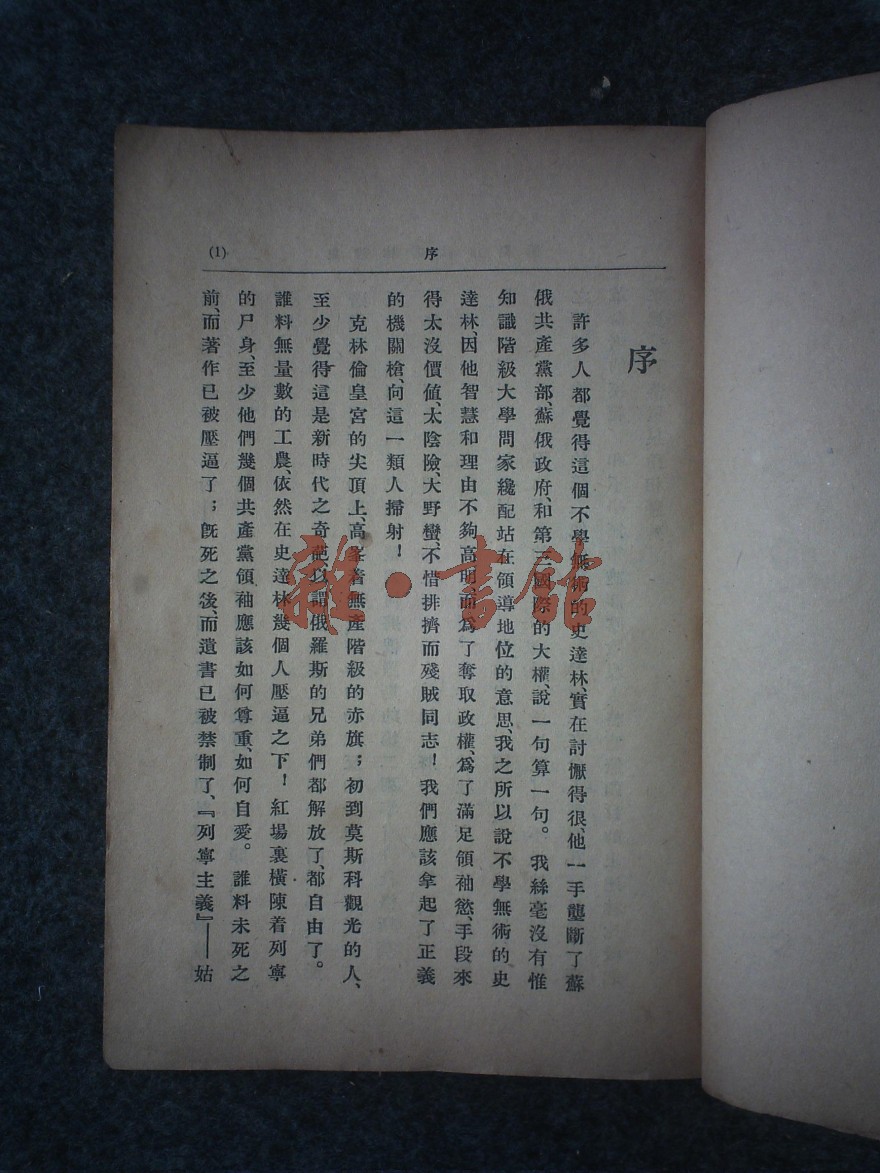 (1)
序
序
許多人都覺得這個不學無術的史達林、實在討懨得很、他一手壟斷了蘇
俄共產黨部、蘇俄政府、和第三國際的大權、說一句算一句。我絲毫沒有惟
知識階級大學問家纔配站在領導地位的意思、我之所以說不學無術的史
達林、因他智慧和理由不夠高明、而爲了奪取政權、爲了滿足領袖慾、手段來
得太沒價値、太陰險、大野蠻、不惜排擠而殘賊同志！我們應該拿起了正義
的機關槍、向這一類人掃射！
克林倫皇宮的尖頂上、高峯着無產階級的赤旗；初到莫斯科觀光的人、
至少覺得這是新時代之奇葩、以謂俄羅斯的兄弟們都解放了、都自由了。
誰料無量數的工農、依然在史達林幾個人壓逼之下！紅場裏橫陳着列寧
的尸身、至少他們幾個共產黨領袖應該如何尊重、如何自愛。誰料未死之
前、而著作已被壓逼了；旣死之後、而遺書已被禁制了、『列寧主義』——姑
雜·書館